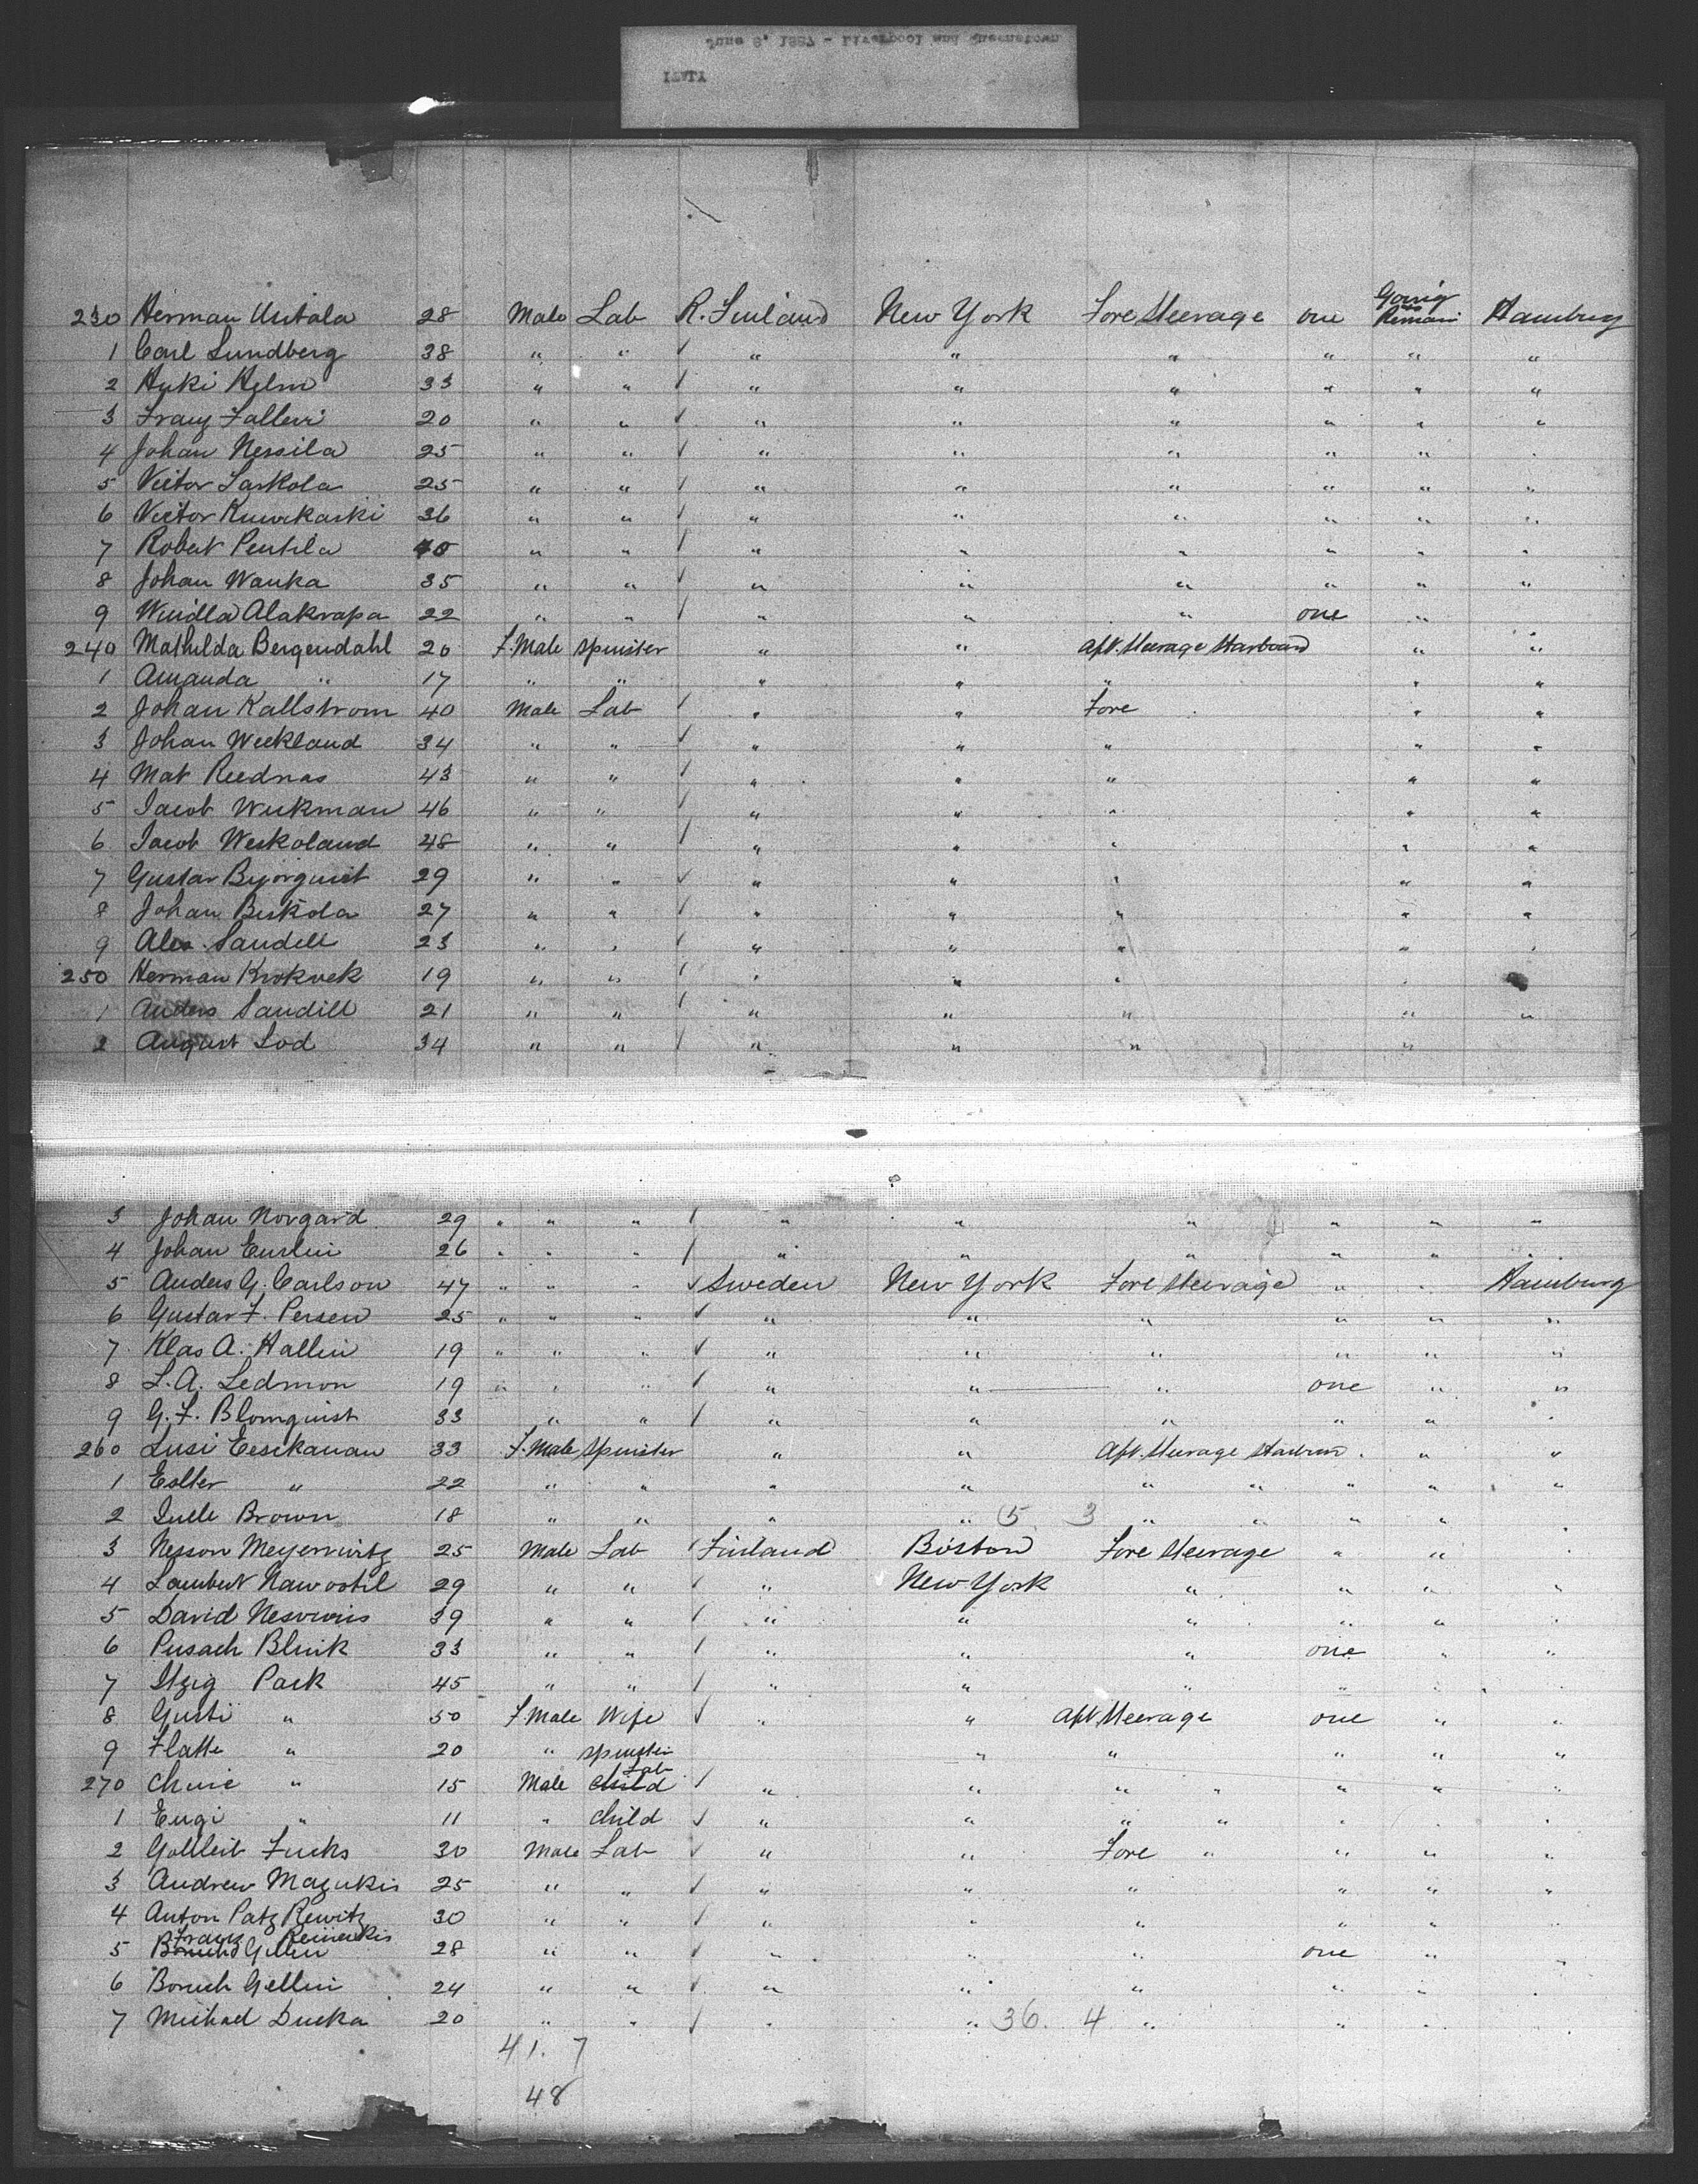 June 8, 1887 - Liverpool and Queenstown
ITALY
230 Herman Uritala 28 Male Lab R. Finland New York Fore Steerage one Going Remain Hamburg
1 Carl Lundberg 38 " " √ " " " " " "
2 Huki Helm 33 " " √ " " " " " "
3 Franz Falleni 20 " " √ " " " " " "
4 Johan Nessila 25 " " √ " " " " " "
5 Victor Laskola 25 " " √ " " " " " "
6 Victor 36 " " √ " " " " " "
7 Robert Pentila 40 " " √ " " " " " "
8 Johan Wanka 35 " " √ " " " " " "
9 Wendla Alakrapa 22 " " √ " " " one "
240 Mathilda Bergendahl 20 F. Male Spinster " " Aft. Steerage Starboard " "
1 Amanda " 17 " " " " " " "
2 Johan Kallstrom 40 Male Lab √ " " Fore " "
3 Johan Weekland 34 " " √ " " " " "
4 Mat Reednas 43 " " √ " " " " "
5 Jacob Wickman 46 " " √ " " " " "
6 Jacob Weskoland 48 " " √ " " " " "
7 Gustav Bijorquist 29 " " √ " " " " "
8 Johan Biskola 27 " " √ " " " " "
9 Alex. Sandell 23 " " √ " " " " "
250 Herman Krokvek 19 " " √ " " " "
1 Anders Sandill 21 " " √ " " " " "
2 August Lod 34 " " √ " " " "
3 Johan Norgard 29 " " " √ " " " " " "
4 Johan Eurlin 26 " " " √ " " " " " "
5 Anders G. Carlson 47 " " " √ Sweden New York Fore Steerage " " Hamburg
6 Gustav F. Persen 25 " " " √ " " " " " "
7 Klas A. Hallin 19 " " " √ " " " " " "
8 L. A. Ledmon 19 " " " √ " " " one " "
9 G. F. Blomquist 33 " " √ " " " " " "
260 Lusi Eesikanan 33 F. Male Spinster " " Aft. Steerage " "
1 Eslter " 22 " " " " " " " " "
2 Julle Brown 18 " " " " 5 3 " " " " "
3 Nesson Meyerowitz 25 Male Lab √ Finland Boston Fore Steerage " " "
4 Lambert Nawostil 29 " " √ " New York " " " "
5 David Nesviris 39 " " √ " " " " " "
6 Pusach Blink 33 " " √ " " " one " "
7 Itzig Pack 45 " " √ " " " " " "
8 Gusti " 50 F. Male Wife √ " " Aft Steerage one " "
9 Flatte " 20 " Spinster " " " " "
270 Chaie " 15 Male Child Lab √ " " " " " " "
1 Eugi " 11 " Child √ " " " " " " "
2 Gottleib Fucks 30 Male Lab √ " " Fore " " " "
3 Andrew Mazukis 25 " " √ " " " " " "
4 Anton Patz Rewitz 30 " " √ " " " " " "
5 Boruch Gellin Franz Reinekis 28 " " √ " " " one " "
6 Boruch Gellin 24 " " √ " " " " " "
7 Michael Ducka 20 " " √ " " 36. 4 " " " "
41. 7
48